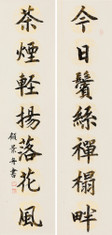 今日鬢絲禪榻畔
茶煙軽揚落花風
顧景舟書